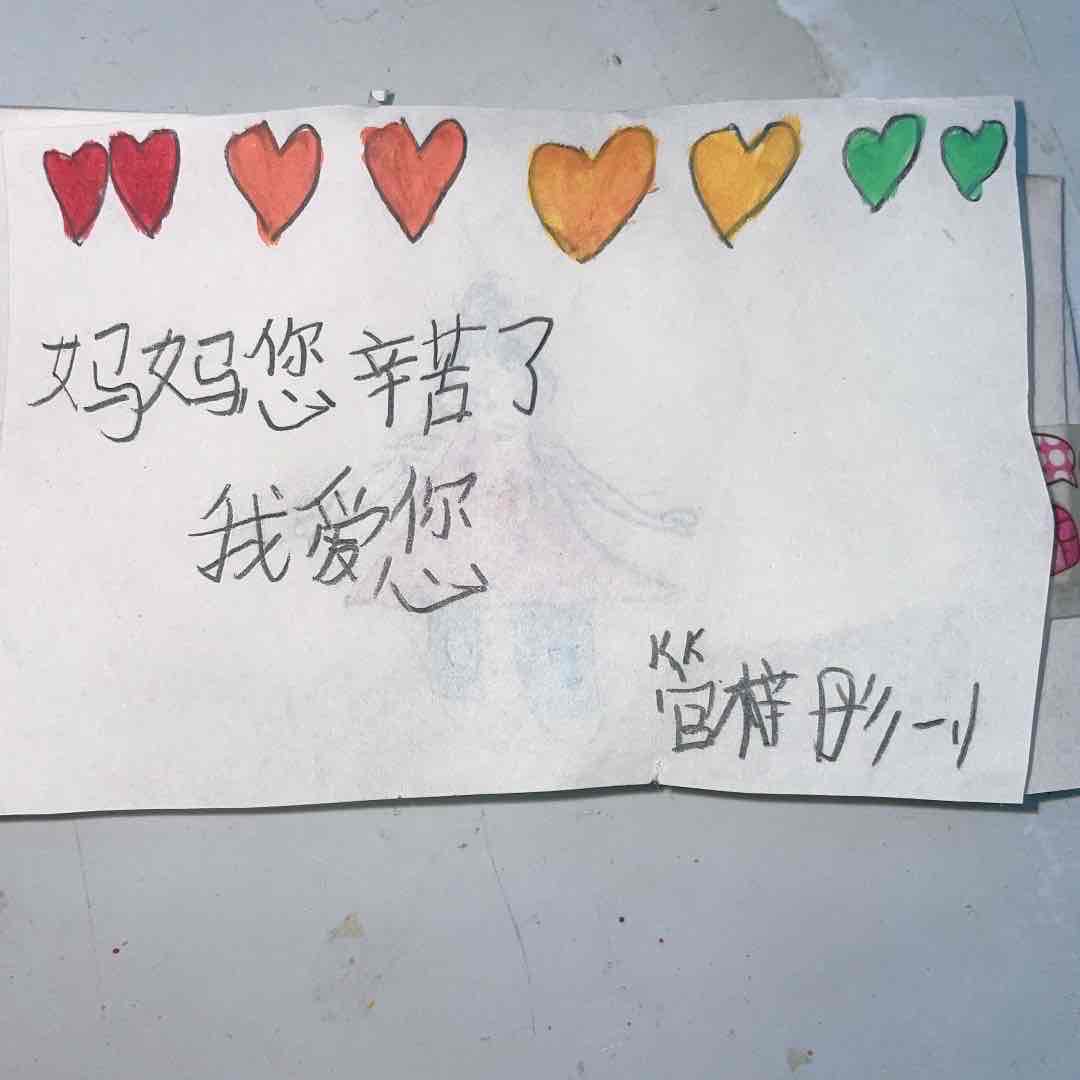 妈妈您辛苦了
我爱您
管梓彤